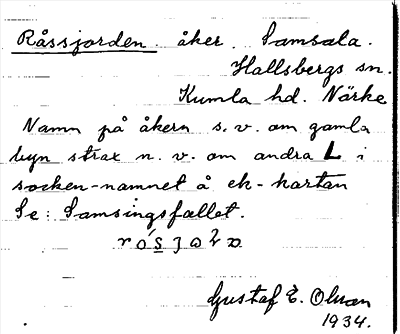 Råssjorden. åker. Samsala.
Hallsbergs sn.
Kumla hd. Närke
Namn på åkern s.v. om gamla
byn strax n.v. om andra L i
socken-namnet å ek-kartan
Se: Samsingsfallet.
Gustaf E. Olson
1934.